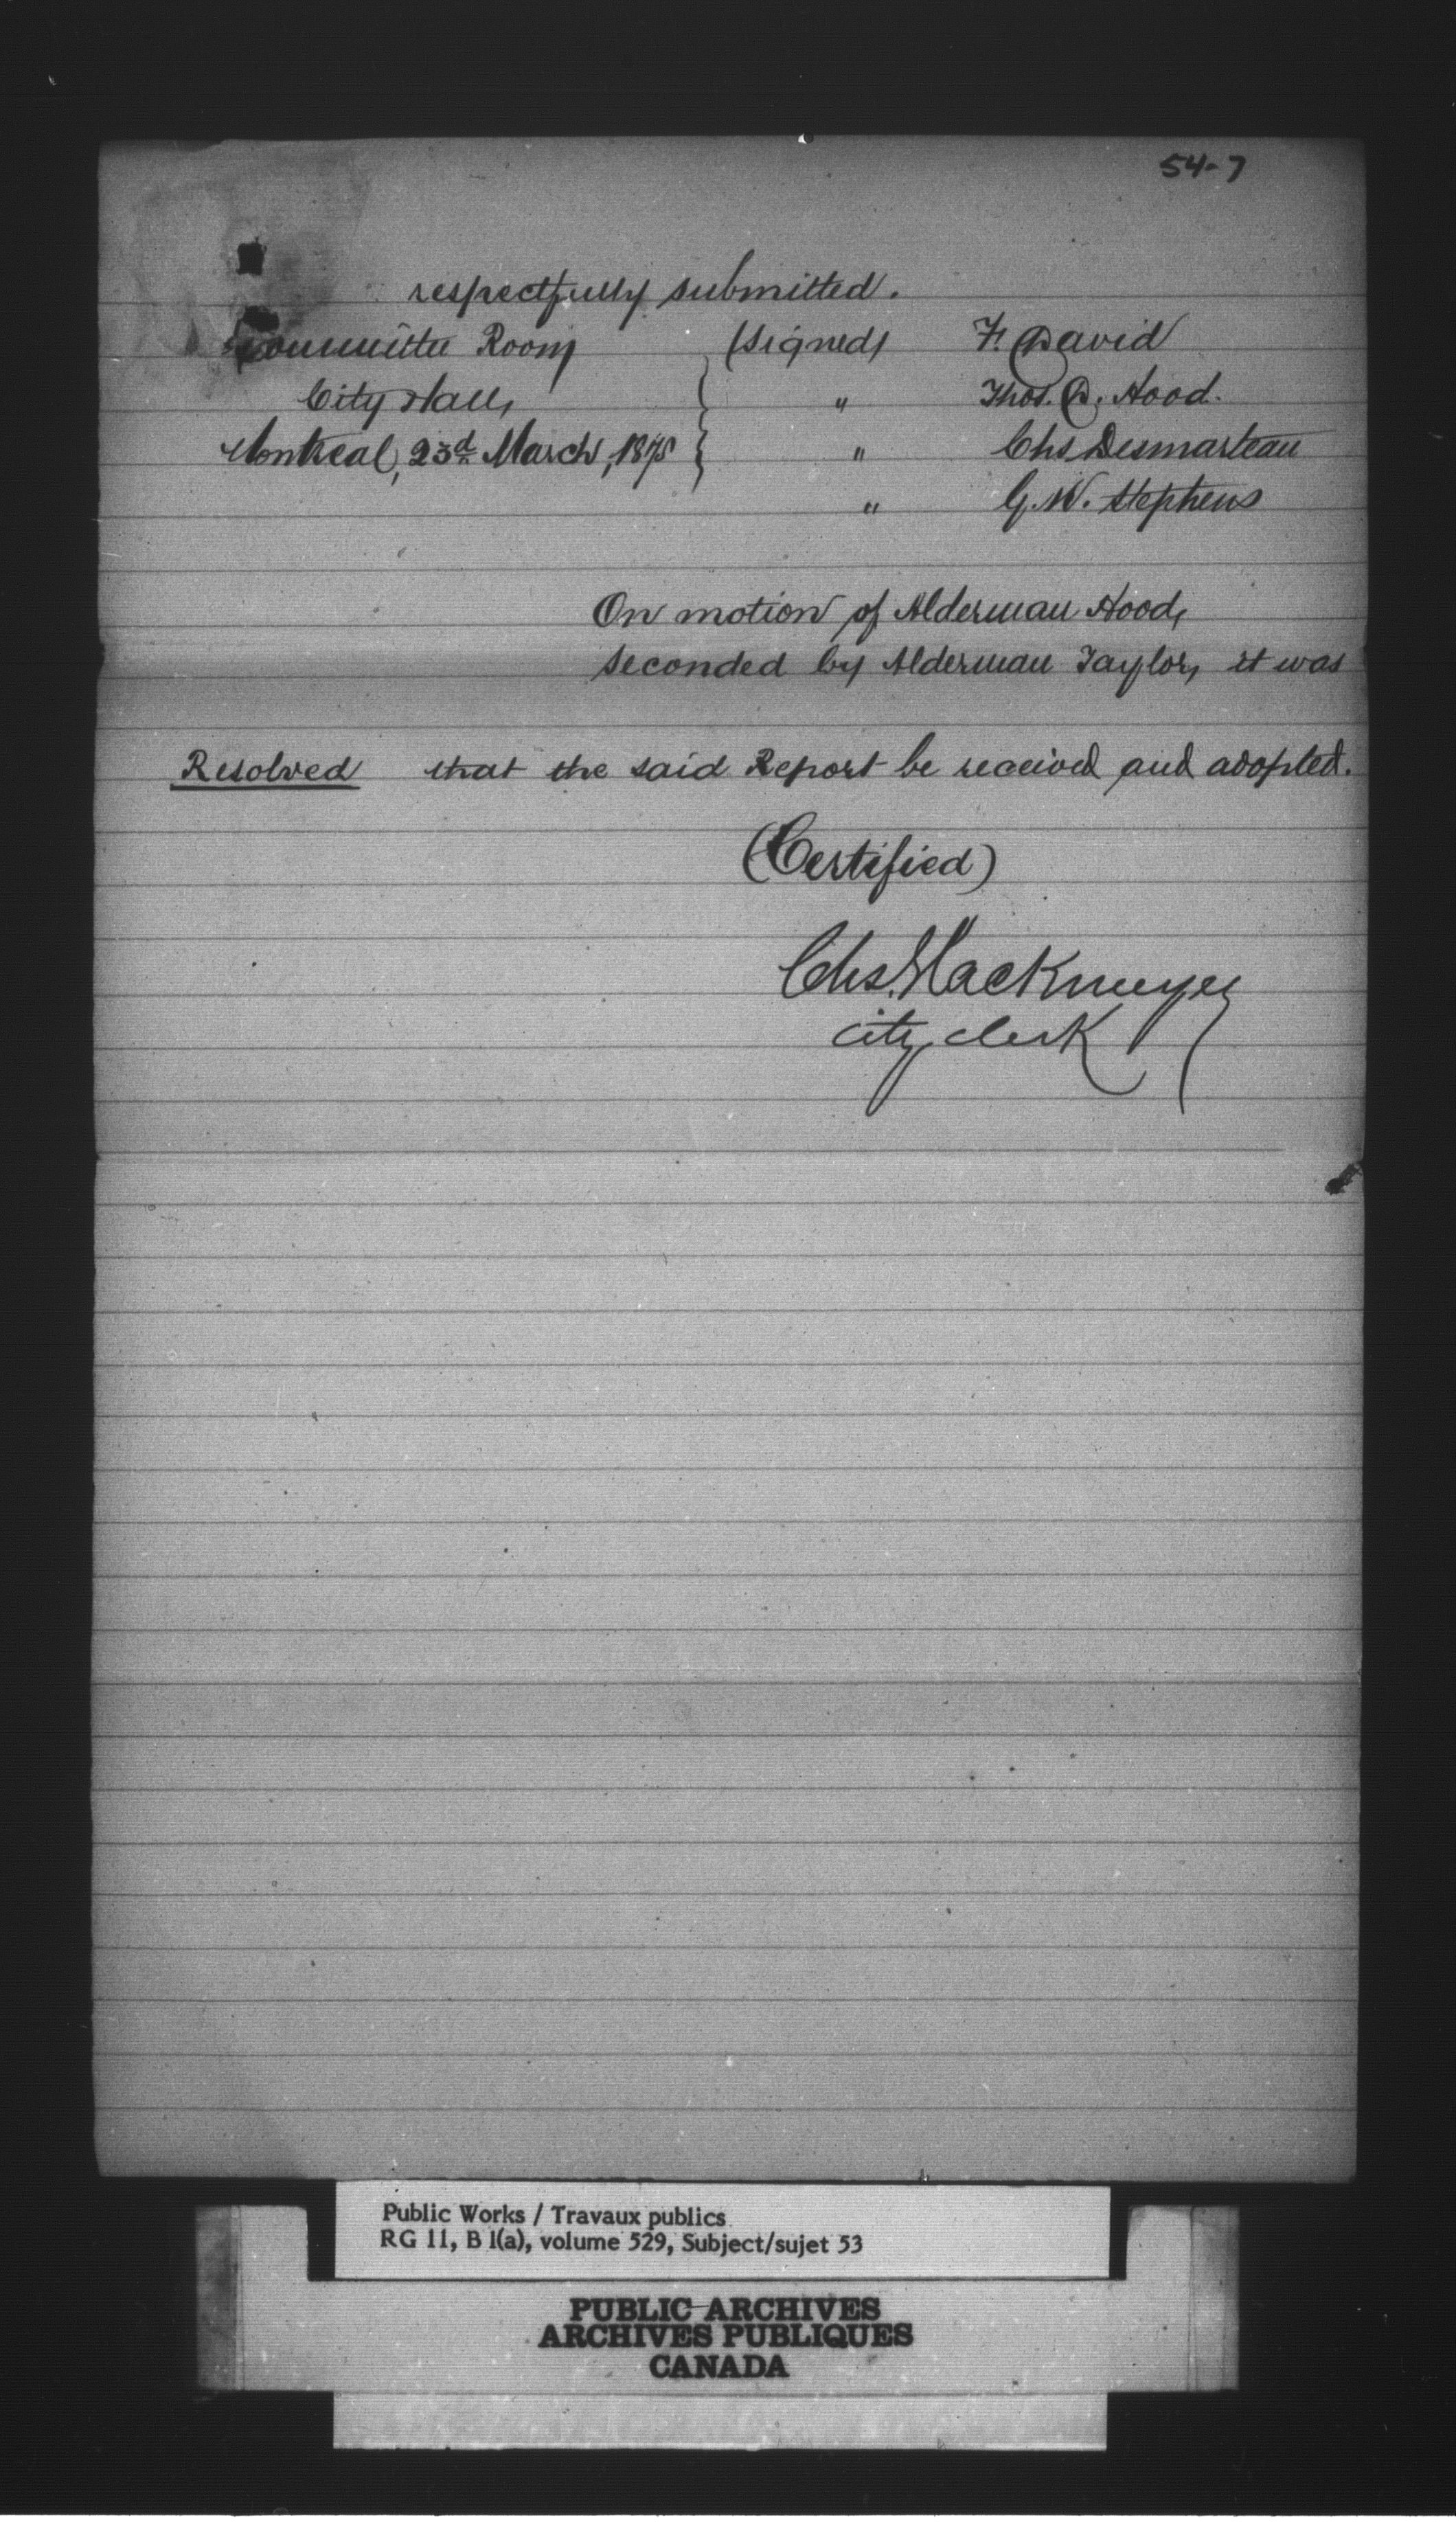 54-7
respectfully submitted.
Committee Room (Signed) F. David
City Hall, " Thos. D. Hood.
Montreal, 23d March, 1875 " Chs Desmarteau
" G. W. Stephens
On motion of Alderman Hood,
seconded by Alderman Taylor, it was
Resolved that the said Report be received and adopted.
(Certified)
Chs. Glackmeyer
City Clerk
Public Works / Travaux publics
RG 11, B 1(a), volume 529, Subject/sujet 53
PUBLIC ARCHIVES
ARCHIVES PUBLIQUES
CANADA